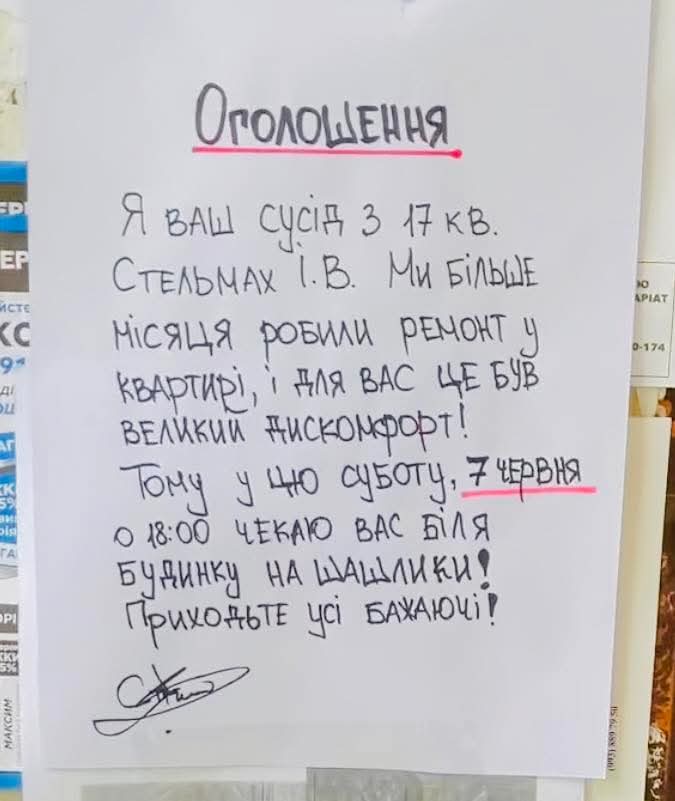 Оголошення
Я ваш сусід з 17 кв.
Стельмах І.В. Ми більше
місяця робили ремонт у
квартирі, і для вас це був
великий дискомфорт!
Тому у цю суботу, 7 червня
о 18:00 чекаю вас біля
будинку на шашлики!
Приходьте усі бажаючі!
МАКСИМ
0-174